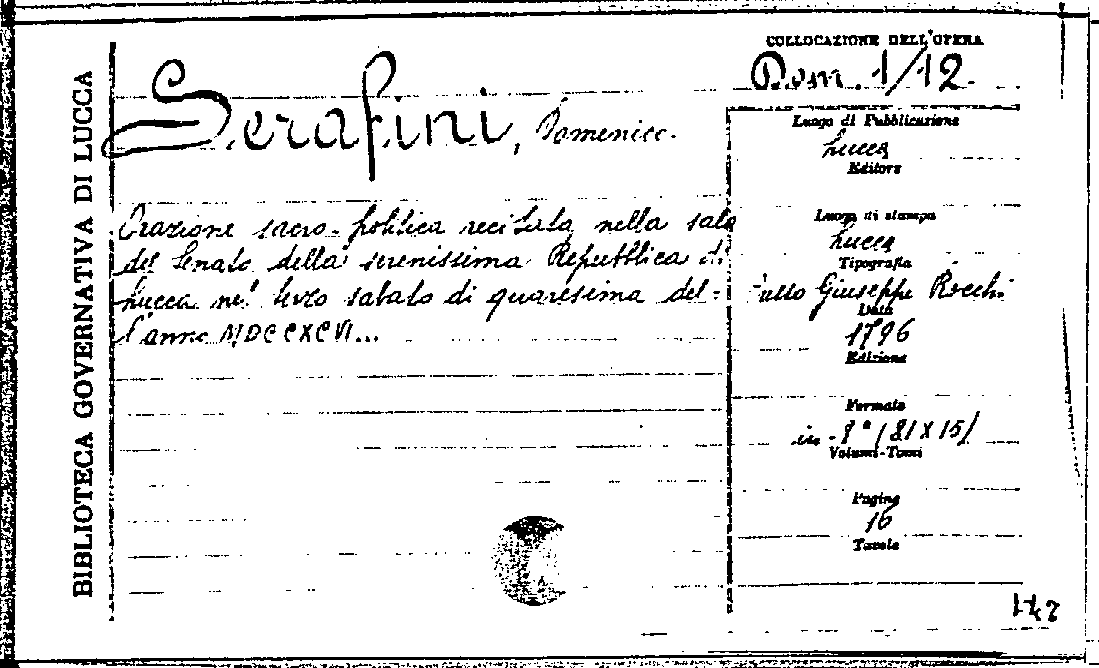 BIBLIOTECA GOVERNATIVA DI LUCCA
COLLOCAZIONE DELL'OPERA
Dom. 1/12
Serafini, Domenico.
Orazione sacro-politica recitata nella sala
del Senato della serenissima Repubblica di
Lucca nel terzo sabato di quaresima del-
l'anno MDCCXCVI...
Luogo di Pubblicazione
Lucca
Editore
Luogo di stampa
Lucca
Tipografia
Giuseppe Rocchi
Data
1796
Edizione
Formato
in-8° (21X15)
Volumi-Tomi
Pagine
16
Tavole